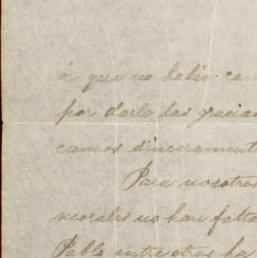 á que no habia
por darle las gracias
cemos sinceramente
Para nosotros
morales no han falta
Pablo entre otros ha